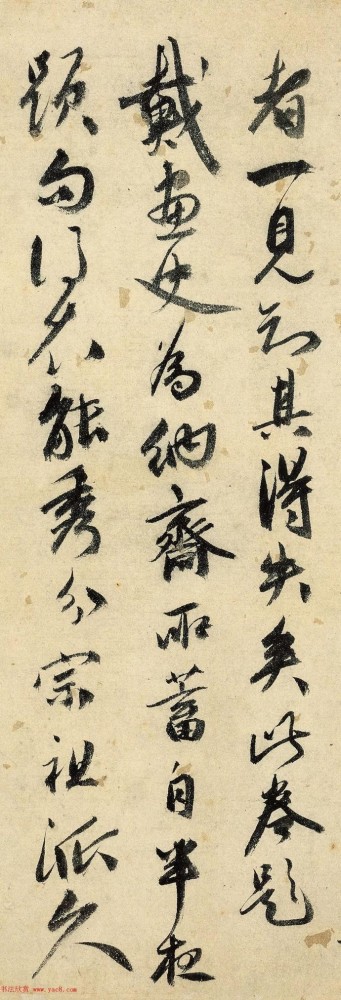 者一見知其得失矣此卷題
戴畫史為納齋所蓄自半
題句何能秀分宗祖派久
书法欣赏 www.yac8.com